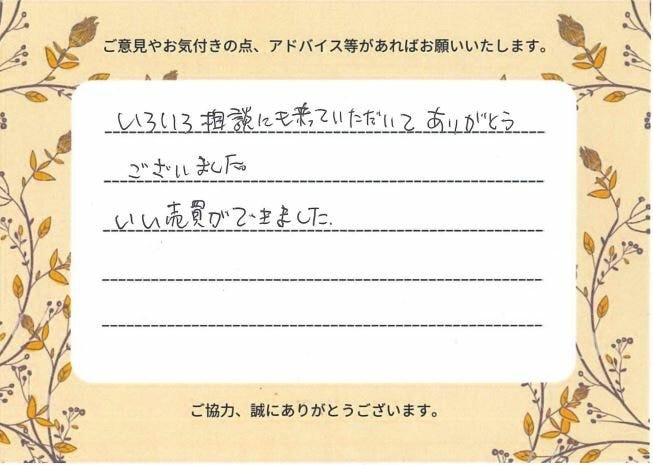 ご意見やお気付きの点、アドバイス等があればお願いいたします。
いろいろ相談にも乗っていただいて ありがとう
ございました。
いい売買ができました.
ご協力、誠にありがとうございます。